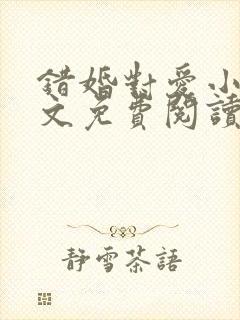 錯婚對愛小
文免費閱讀
靜雪茶語